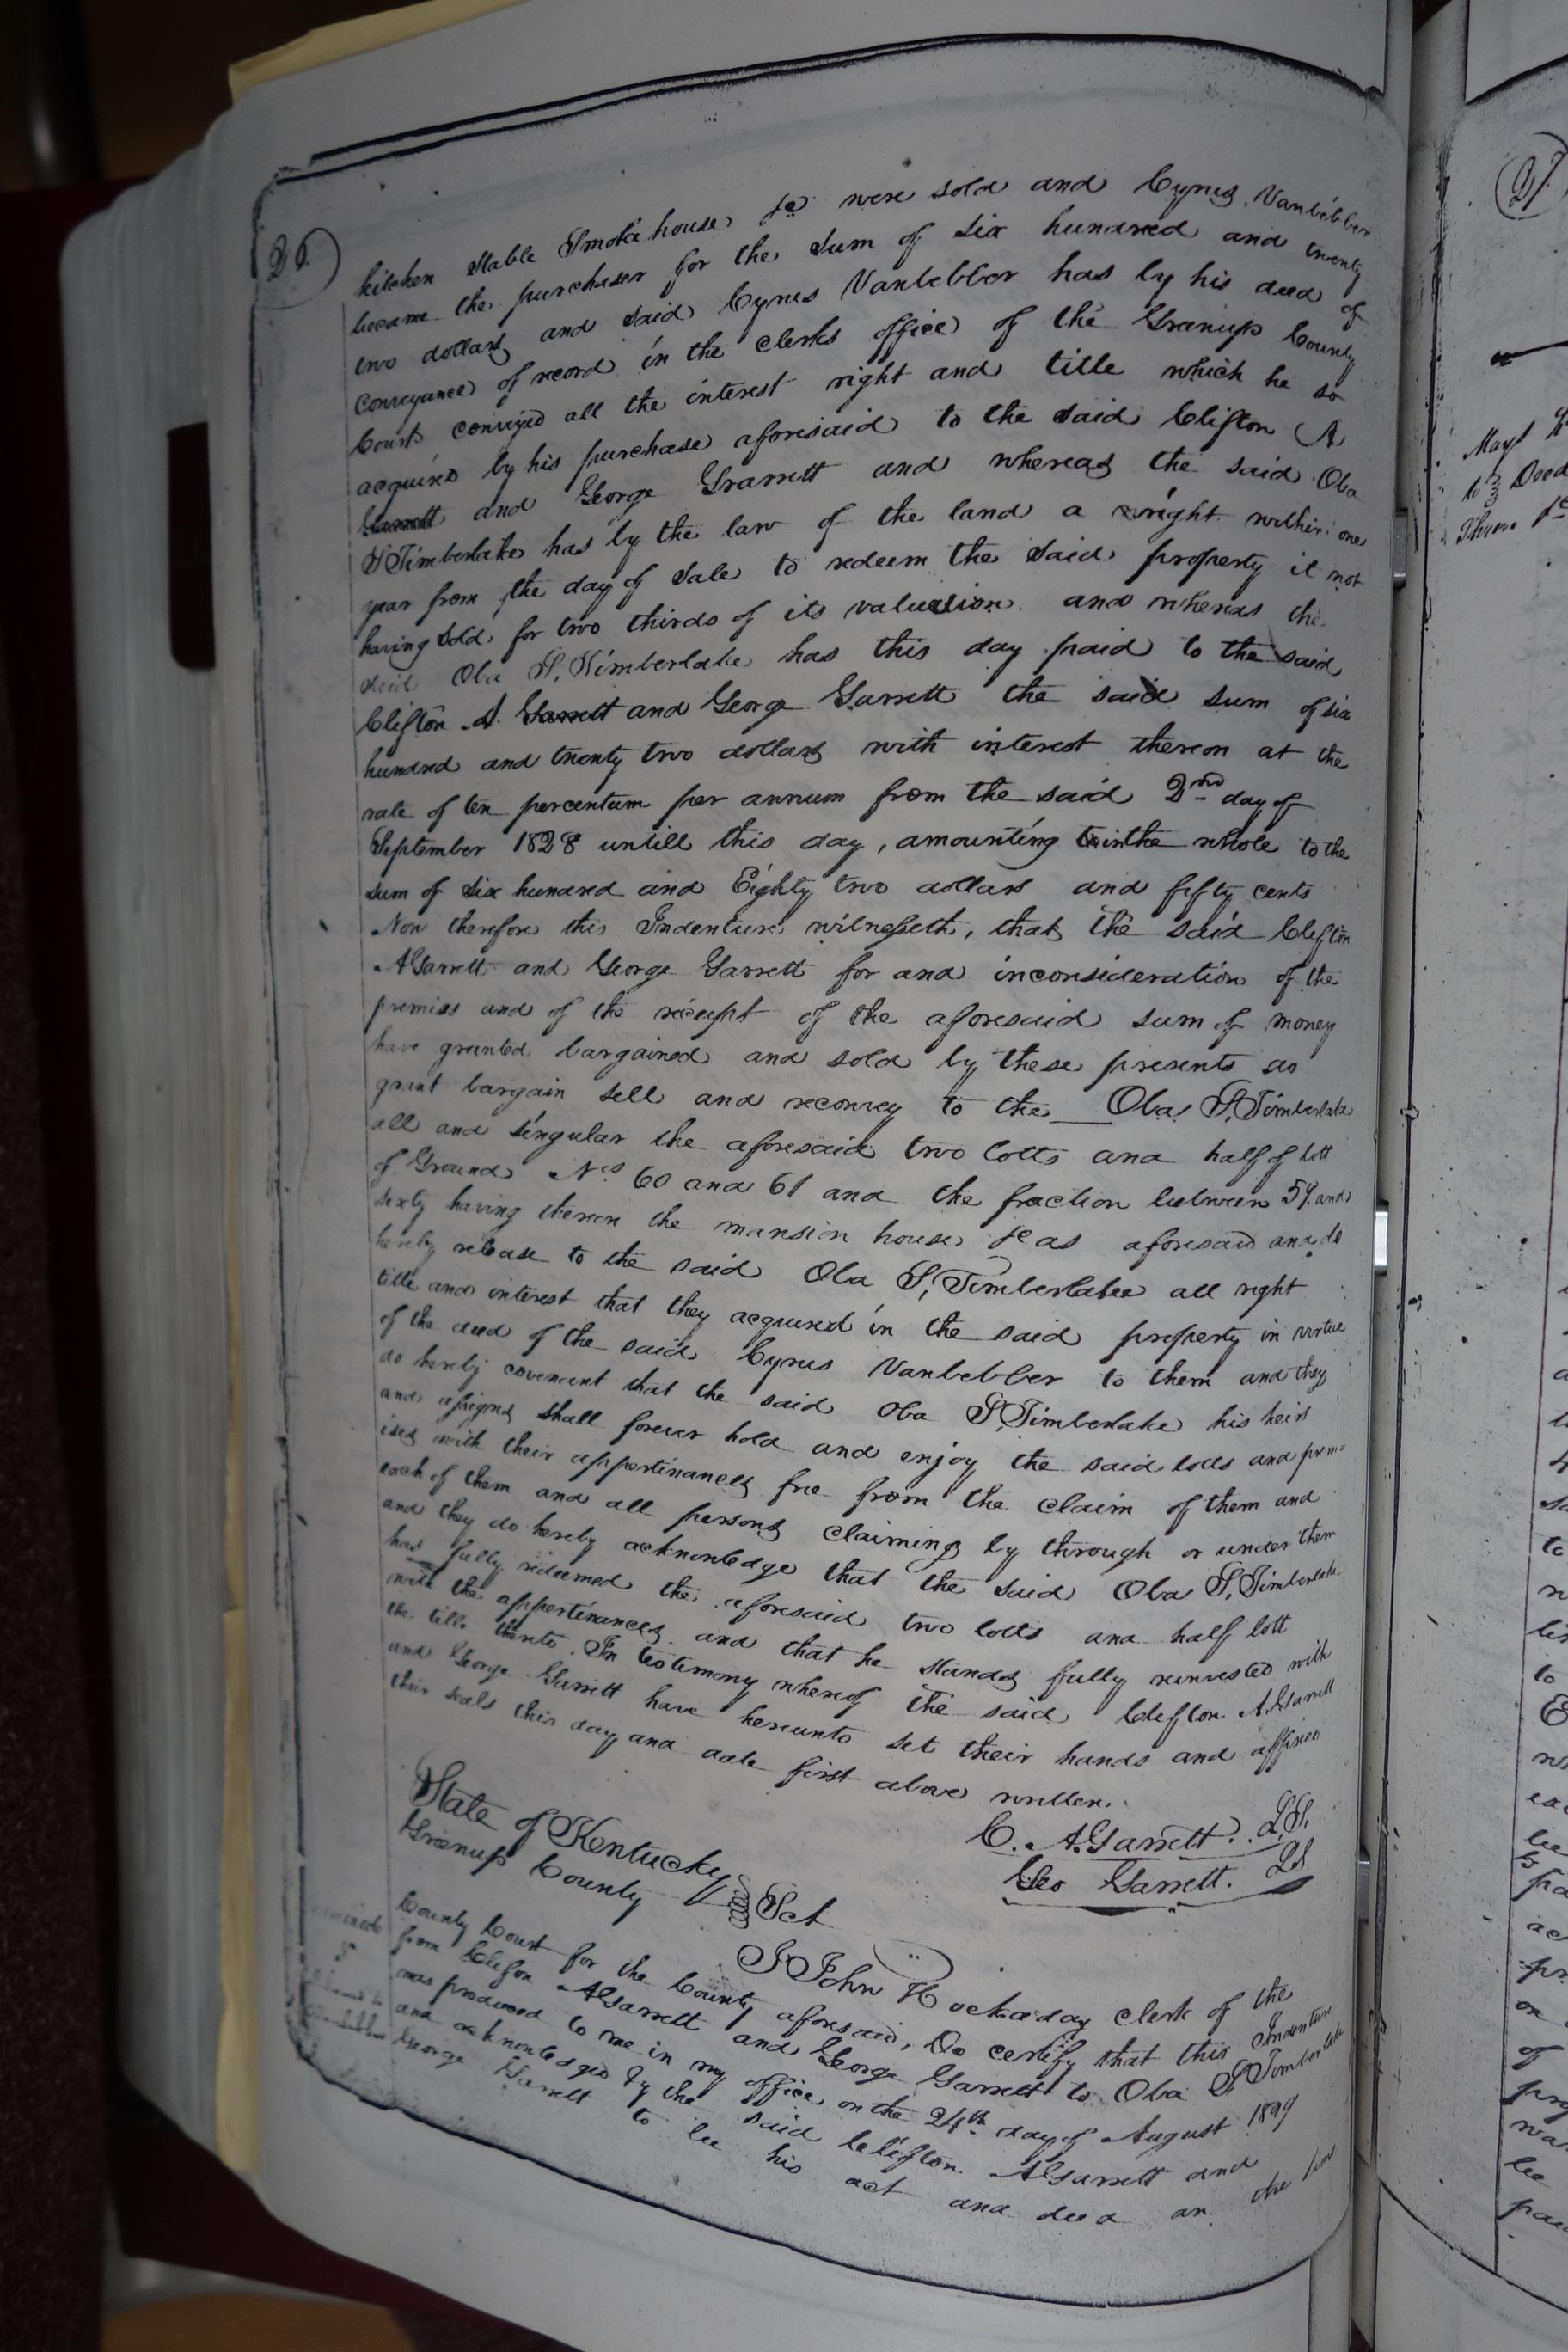 26
kitchen stable Smoke house, &c were sold and Cyrus Vanbibber
became the purchaser for the sum of six hundred and twenty
two dollars and said Cyrus Vanbebber has by his deed of
conveyance of record in the clerks office of the Greenup County
Court conveyed all the interest right and title which he so
acquired by his purchase aforesaid to the said Clifton A
Garrett and George Grarrett and whereas the said Oba
S Timberlake has by the law of the land a right within one
year from the day of sale to redeem the said property it not
having sold for two thirds of its valuation and whereas the
said Oba S. Timberlake has this day paid to the said
Clifton A. Garrett and George Garrett the said sum of six
hundred and twenty two dollars with interest thereon at the
rate of ten percentum per annum from the said 2nd day of
September 1828 untill this day, amounting in the whole to the
sum of six hundred and Eighty two dollars and fifty cents
Now therefore this Indenture witnesseth, that the said Clifton
A Garrett and George Garrett for and inconsideration of the
premises and of the receipt of the aforesaid sum of money
have granted bargained and sold by these presents do
grant bargain sell and reconvey to the Oba S. Timberlake
all and singular the aforesaid two lotts and half of lott
of Ground Nos 60 and 61 and the fraction between 59 and
sixty having thereon the mansion house &c as aforesaid and do
hereby release to the said Oba S. Timberlake all right
title and interest that they acquired in the said property in virtue
of the deed of the said Cyrus Vanbebber to them and they
do hereby covenant that the said Oba S. Timberlake his heirs
and assigns shall forever hold and enjoy the said lotts and prem=
ises with their appertinances free from the claim of them and
each of them and all persons claiming by through or under them
and they do hereby acknowledge that the said Oba S. Timberlake
has fully redeemed the aforesaid two lotts and half lott
with the appertinances and that he stands fully reinvested with
the title thereto. In testimony whereof the said Clifton A. Garrett
and George Garrett have hereunto set their hands and affixed
their seals this day and date first above written.
C. A. Garrett. L.S.
Geo Garrett. LS
State of Kentucky
Greenup County Sct
I John Hockaday clerk of the
County Court for the County aforesaid, Do certify that this Indenture
from Clifton A Garrett and George Garrett to Oba S Timberlake
was produced to me in my office on the 24th day of August 1829
and acknowledged by the said Clifton A Garrett and
George Garrett to be his act and deed
27
May
to Deed